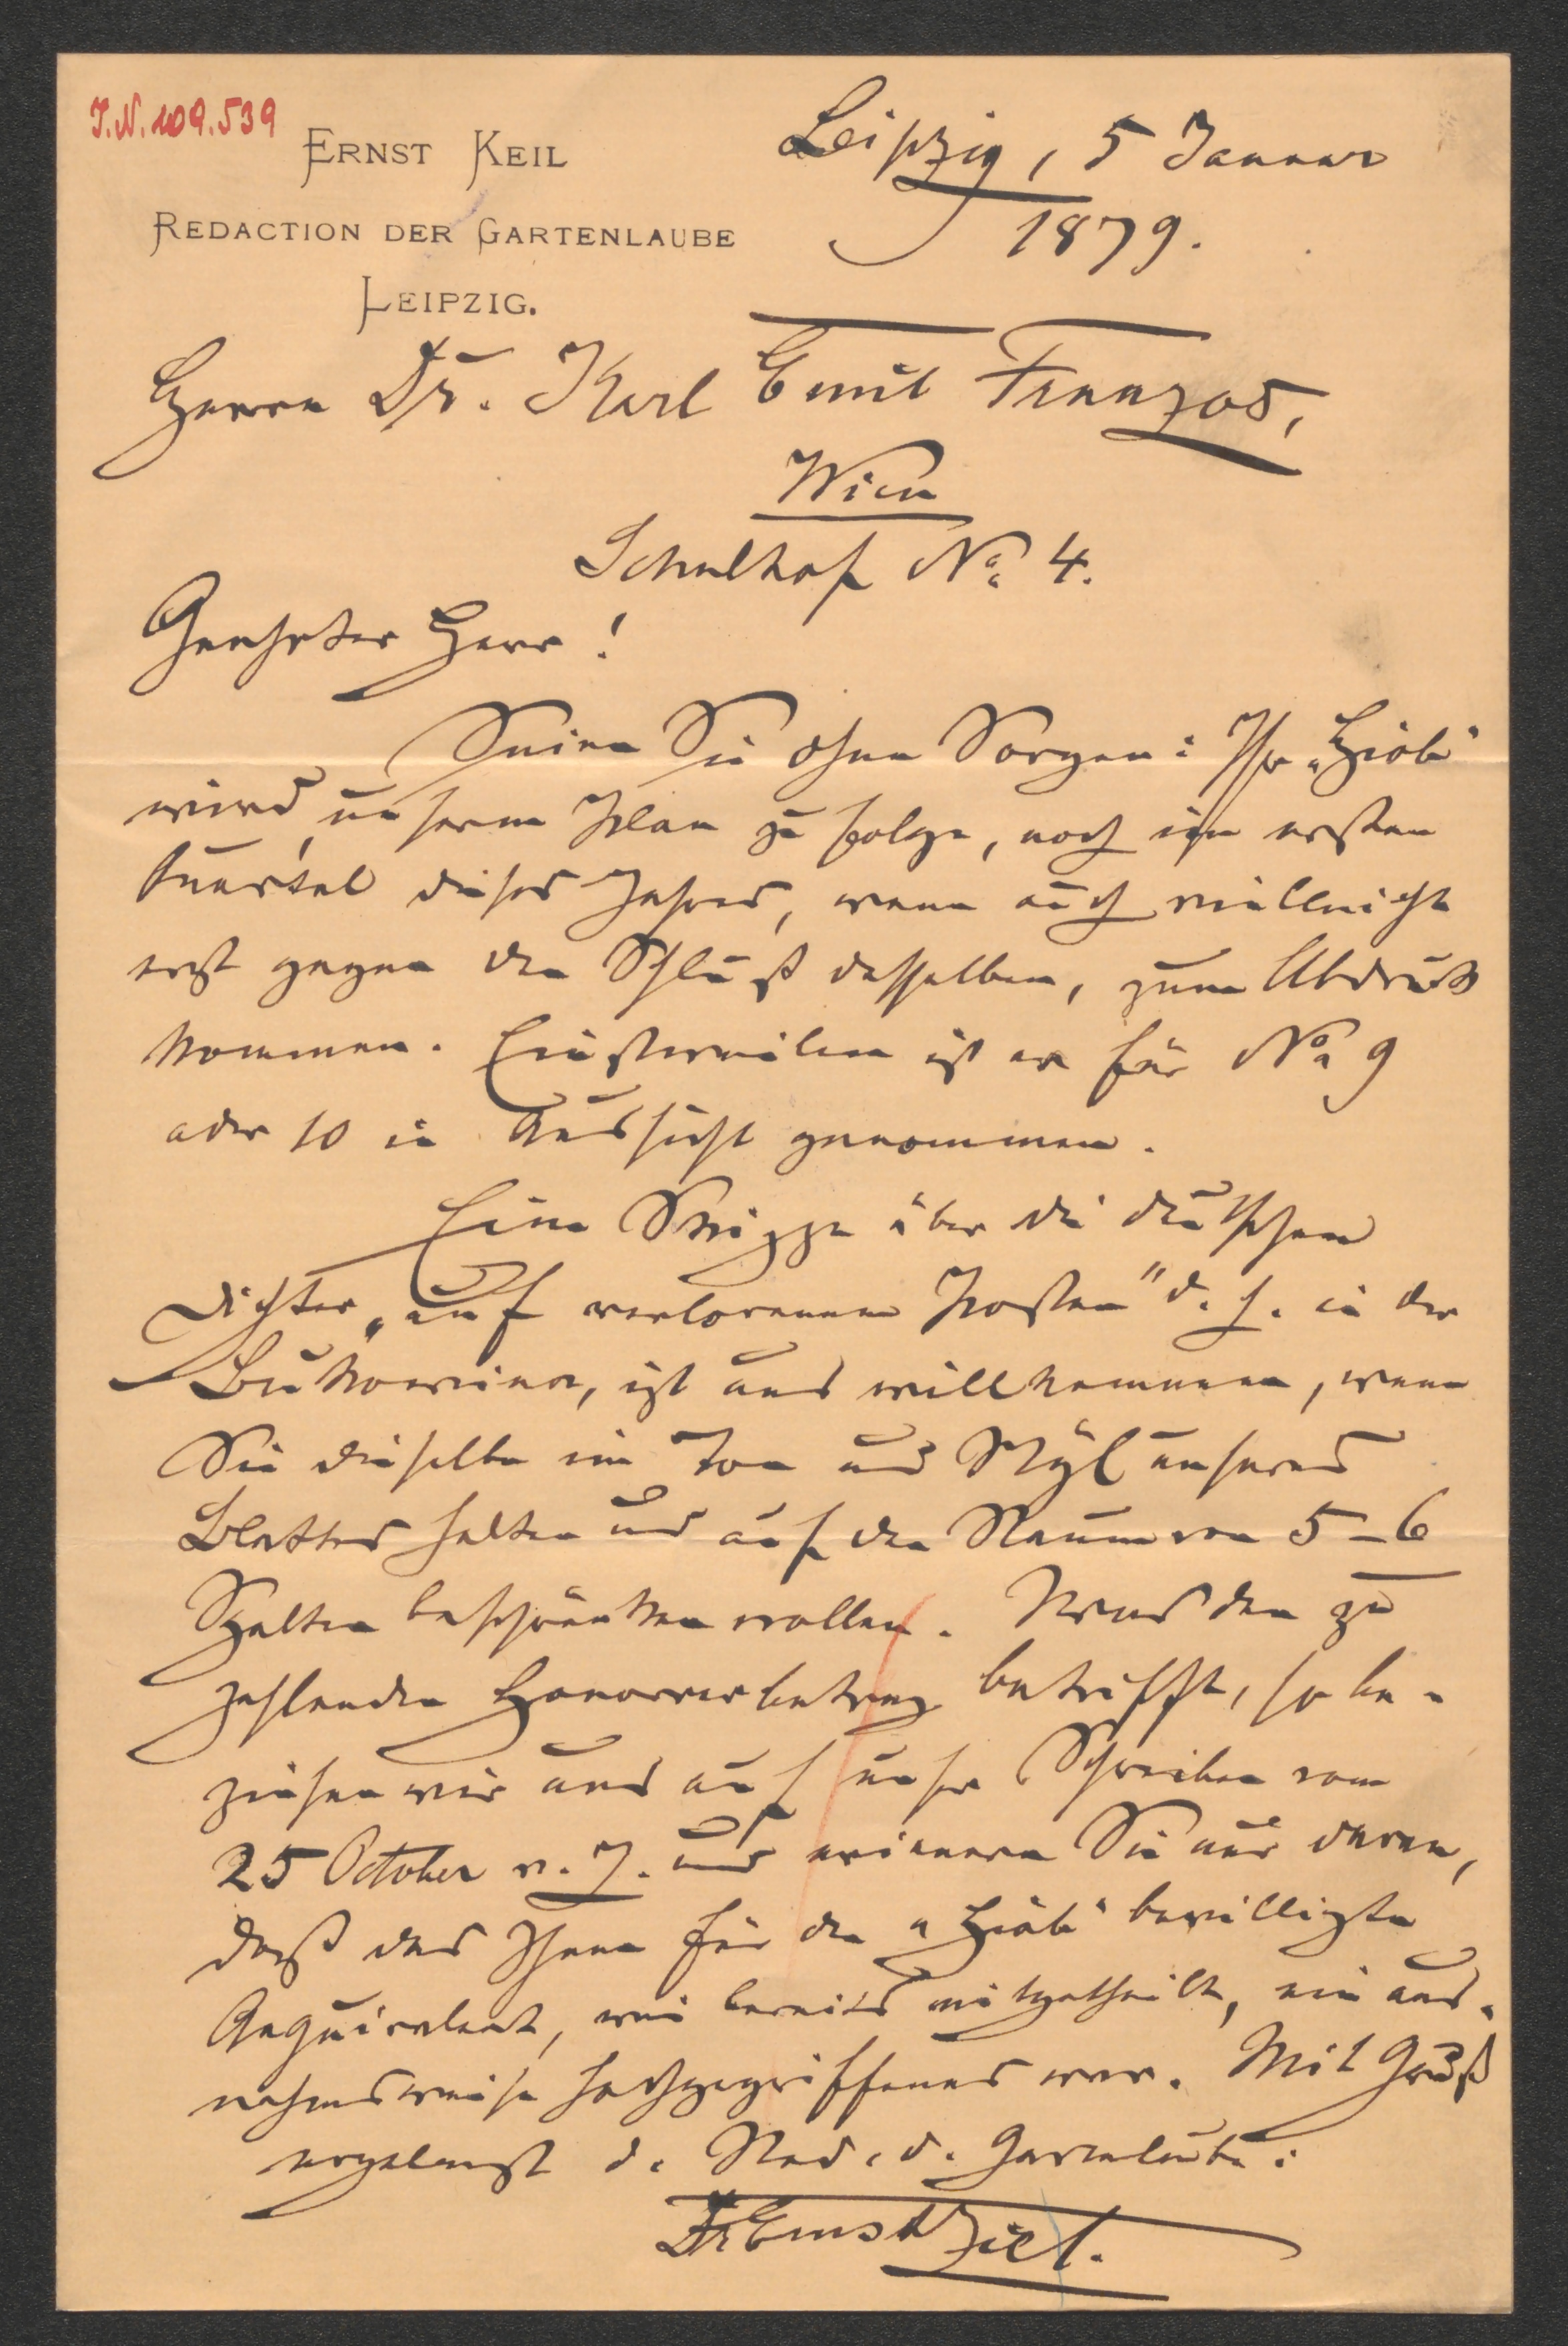 I.N. 109.539
ERNST KEIL
REDACTION DER GARTENLAUBE
LEIPZIG.
Leipzig, 5 Januar
1879.
Herrn Dr. Karl Emil Franzos,
Wien
Schulhof No. 4.
Geehrter Herr!
Seien Sie ohne Sorgen: Ihr „Hiob“
wird, unserm Plan zu folge, noch im ersten
Quartal dieses Jahres, wenn auch vielleicht
erst gegen den Schluß desselben, zum Abdruck
kommen. Einstweilen ist er für No. 9
oder 10 in Aussicht genommen.
Eine Skizze über die deutschen
Dichter „auf verlorenem Posten“ d. h. in der
Bukowina, ist uns willkommen, wenn
Sie dieselbe im Ton und Styl unseres
Blattes halten und auf den Raum von 5–6
Spalten beschränken wollen. Was den zu
zahlenden Honorarbetrag betrifft, so be-
ziehen wir uns auf unser Schreiben vom
25 October v. J. und erinnern Sie nur daran,
daß das Ihnen für den „Hiob“ bewilligte
Aequivalent, wie bereits mitgetheilt, ein aus-
nahmsweise hochgegriffenes war. Mit Gruß
ergebenst d. Red. d. Gartenlaube:
Dr Ernst Ziel.